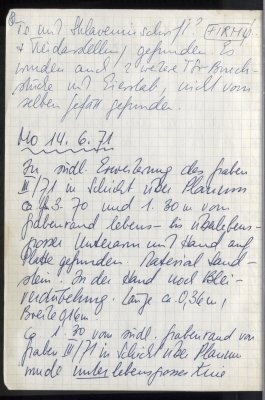 TS mit Sklaveninschrift? (FIRMU
+ Niedarstellen) gefunden. Es
wurden auch 2 weitere TS-Bruch-
stücke mit Eierstab, nicht vom
selben Gefäß gefunden.
Mo 14. 6. 71
In südl. Erweiterung des Graben
III/71 in Schicht über Planum
ca 3.70 und 1.30 m vom
Grabenrand lebens- bis überlebens-
grosser Unterarm mit Hand auf
Platte gefunden. Material Sand-
stein. In der Hand noch Blei-
verdübelung. Länge ca 0,36 m,
Breite 0,16 m.
Ca 1.30 vom südl. Grabenrand von
Graben III/71 in Schicht über Planum
wurde unterlebensgrosses Knie